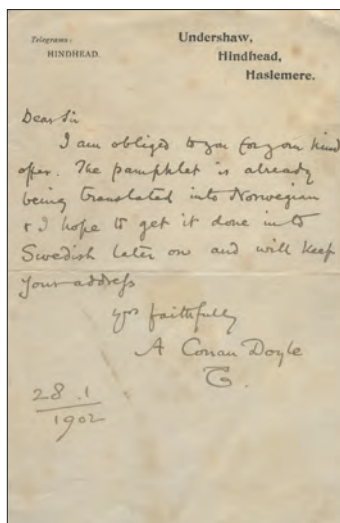 Telegrams:
HINDHEAD.
Undershaw,
Hindhead,
Haslemere.
Dear Sir
I am obliged to you for your kind
offer. The pamphlet is already
being translated into Norwegian
& I hope to get it done into
Swedish later on and will keep
your address
yrs faithfully
A Conan Doyle
28.1
1902